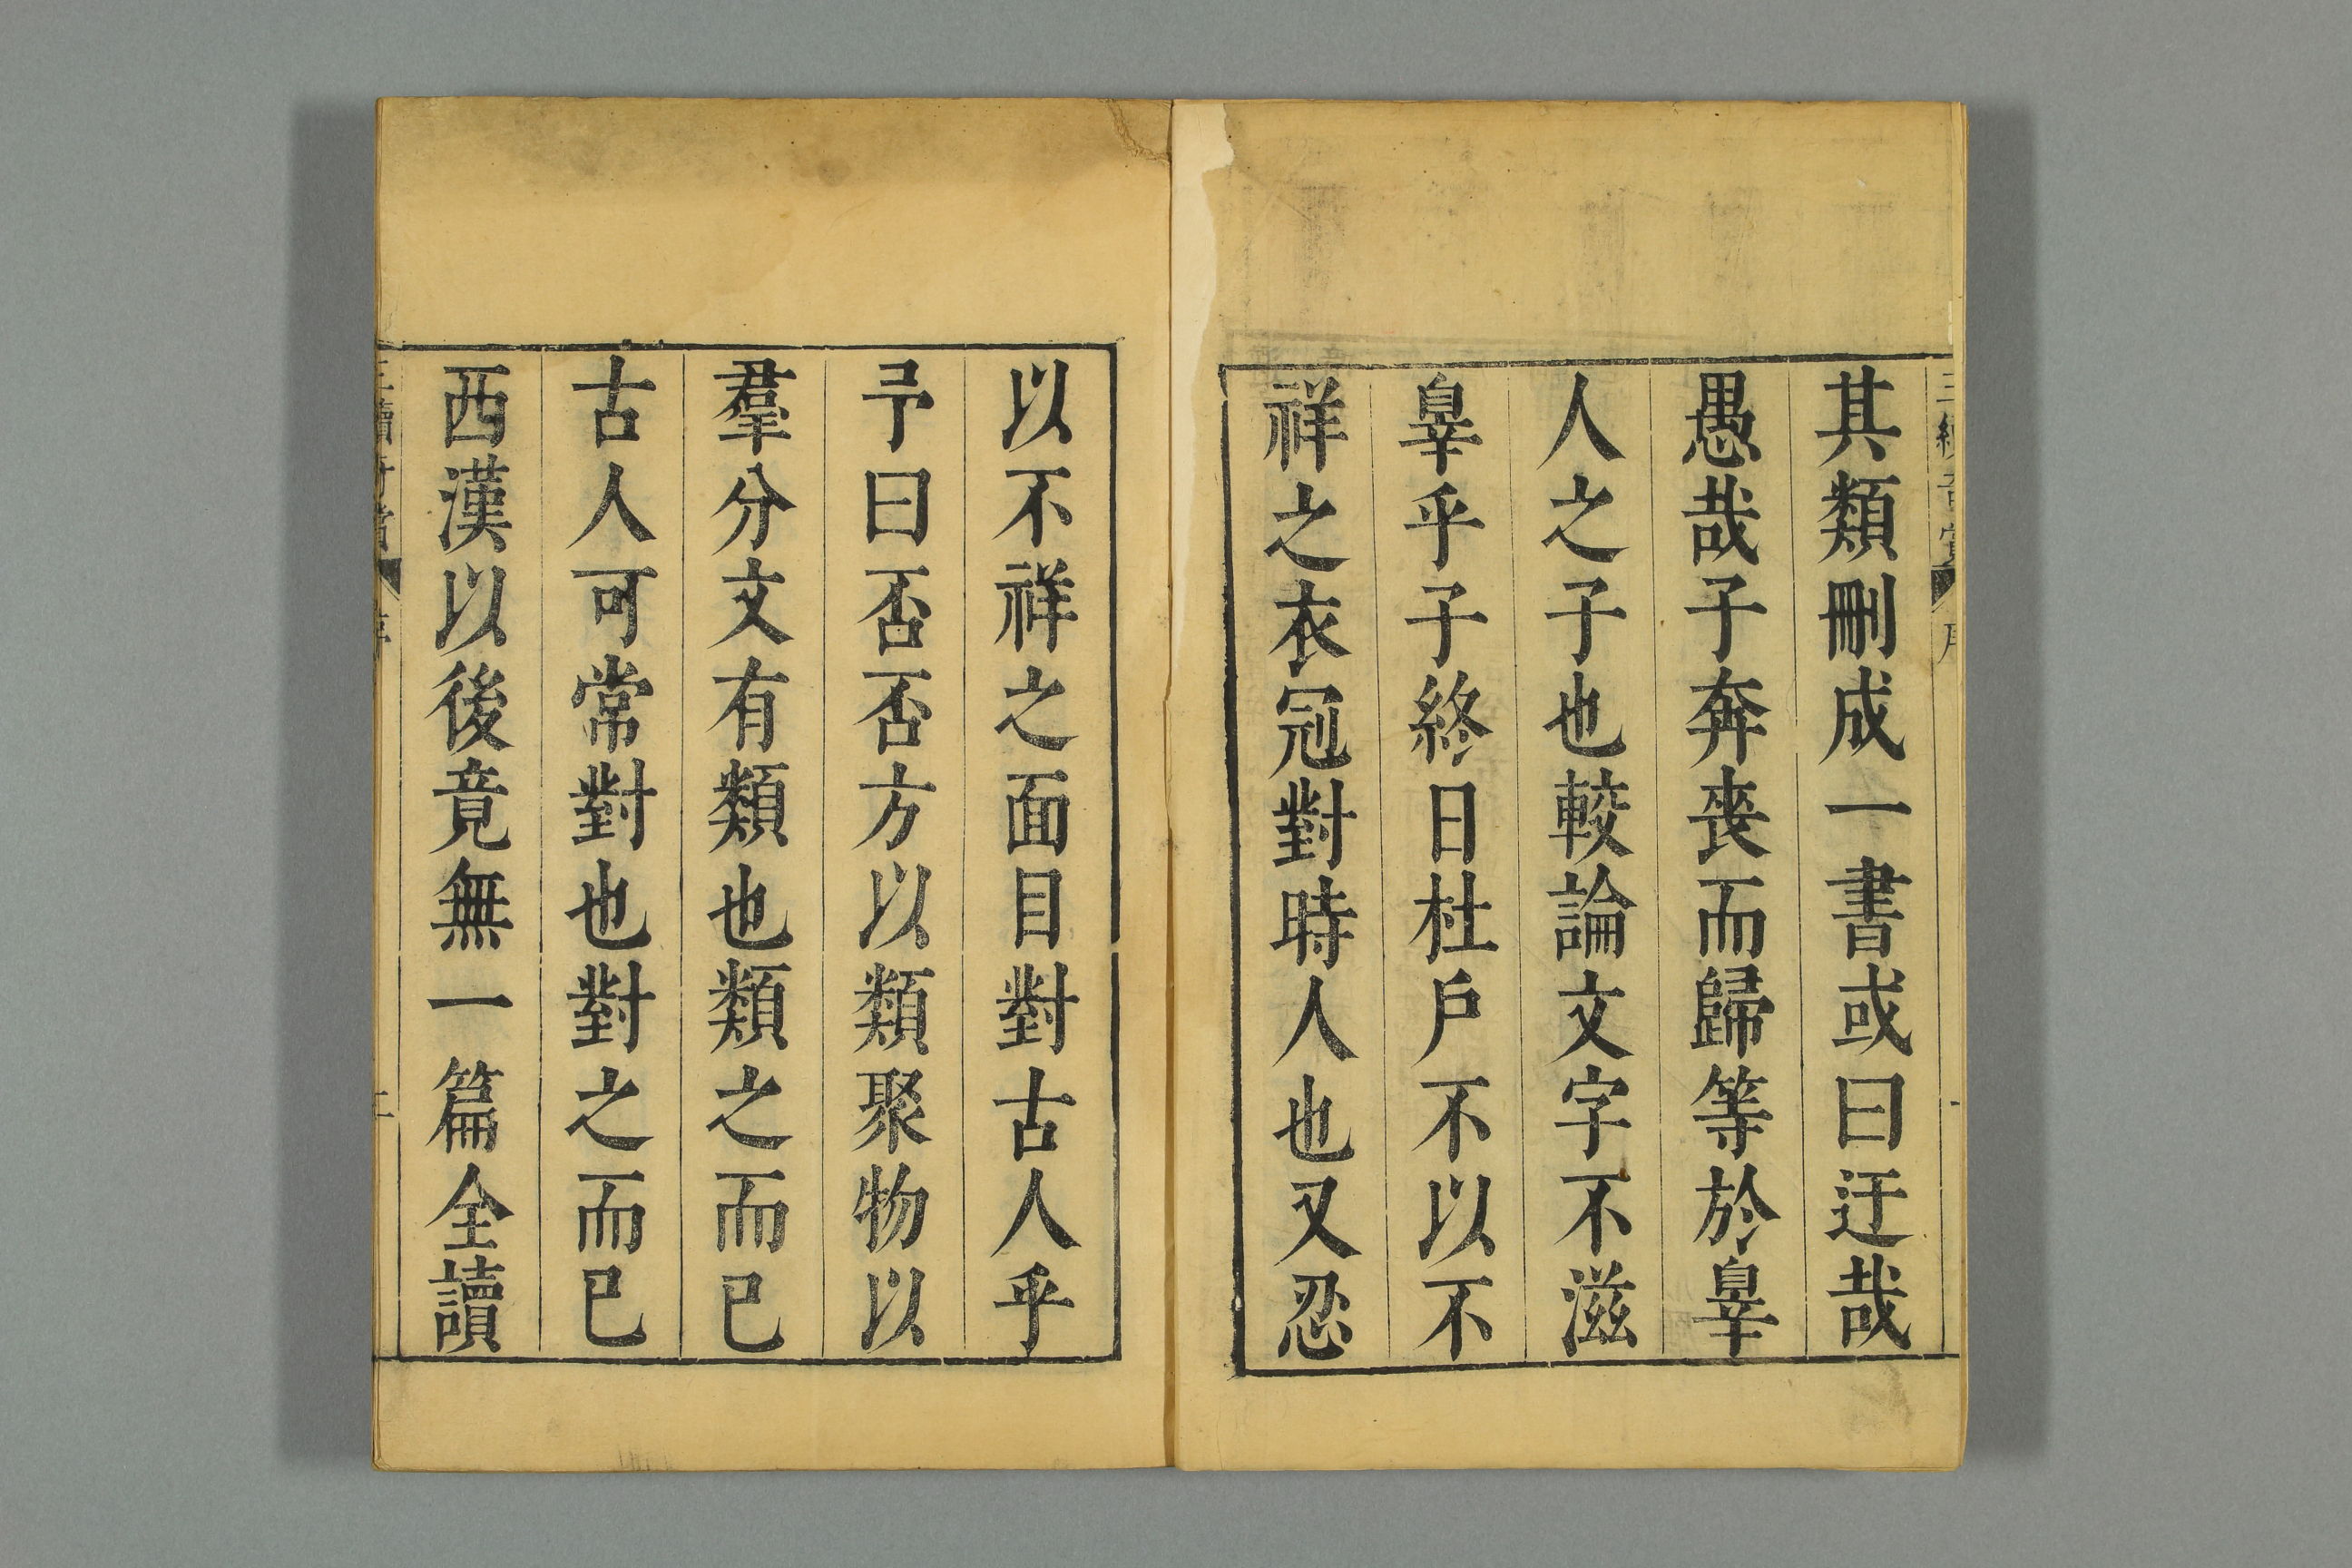 其類刪成一書或曰迂哉
愚哉子奔喪而歸等於辠
人之子也較論文字不滋
辠乎子終日杜戶不以不
祥之衣冠對時人也又忍
以不祥之面目對古人乎
予曰否否方以類聚物以
羣分文有類也類之而已
古人可常對也對之而已
西漢以後竟無一篇全讀